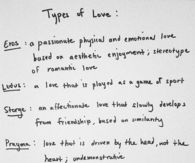 Types of Love :
Eros : a passionate physical and emotional love
based on aesthetic enjoyment; stereotype
of romantic love
Ludus : a love that is played as a game or sport
Storge : an affectionate love that slowly develops
from friendship, based on similarity
Pragma : love that is driven by the head, not the
heart; undemonstrative